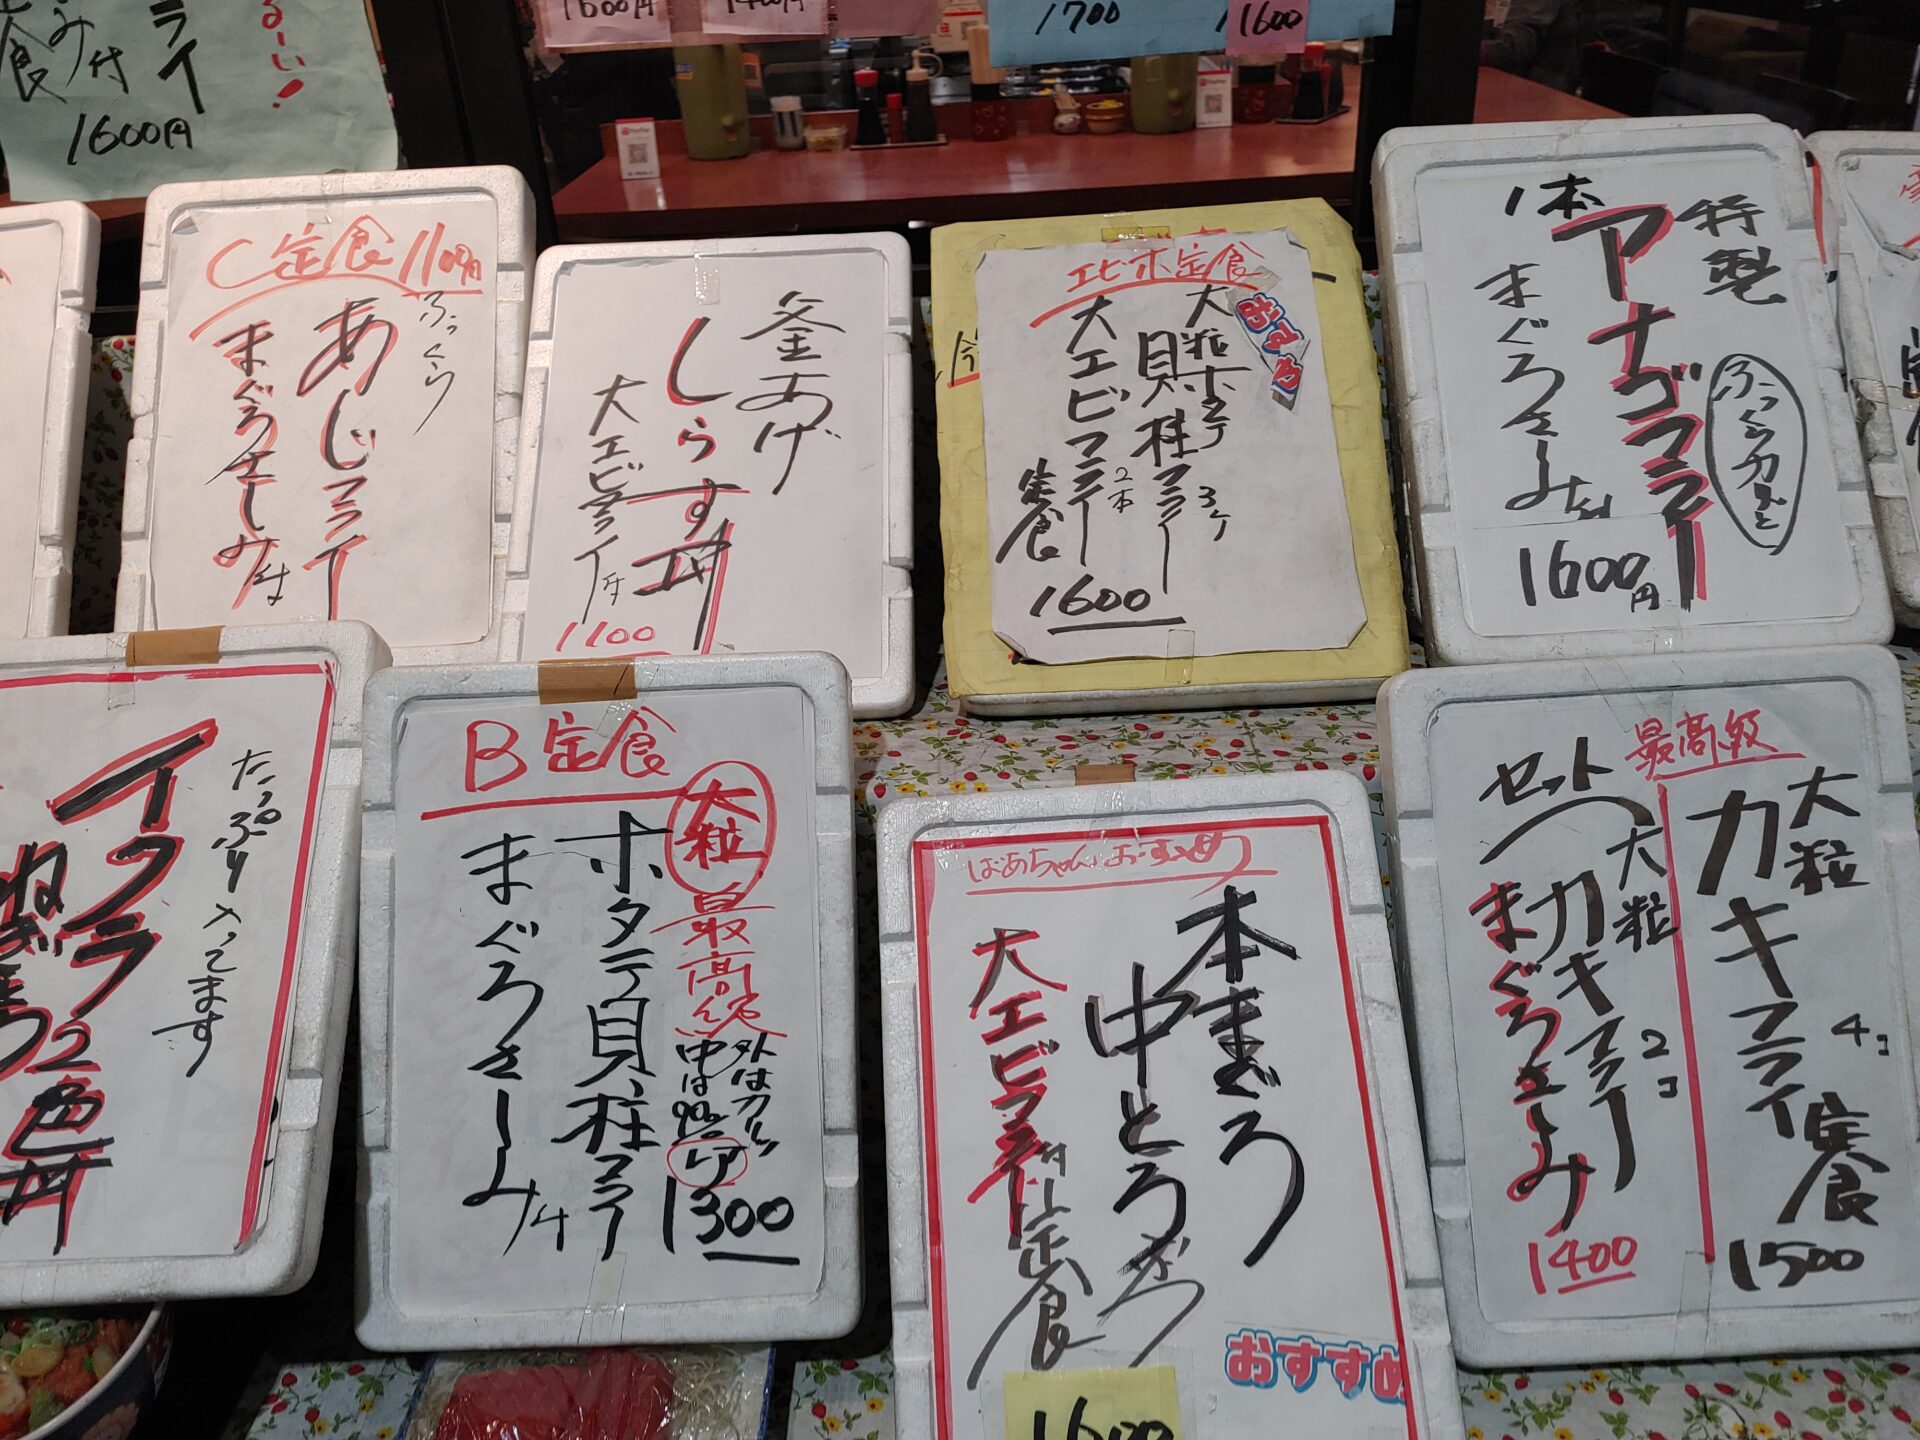 食
み付
ライ
るーい!
1600円
1600円
1400円
1700
1600
PayPay
C定食 1100円
ふっくら
あじフライ
まぐろさしみ付
釜あげ
しらす丼
大エビフライ付
1100
エビホ定食
おすすめ
大粒ホタテ
貝柱フライ 3ケ
大エビフライ 2本
定食
1600
特製
1本アナゴフライ
まぐろさしみ付
1600円
たっぷり入ってます
イクラ
ねぎとろ2色丼
B定食
大粒
最高級
外はカリッ
中は90%
レア
ホタテ貝柱フライ
まぐろさしみ付
1300
ばあちゃんおすすめ
本まぐろ
中とろ
大エビフライ付
定食
1600
おすすめ
最高級
大粒
カキフライ 4コ
定食
1500
セット
大粒
カキフライ 2コ
まぐろさしみ
1400